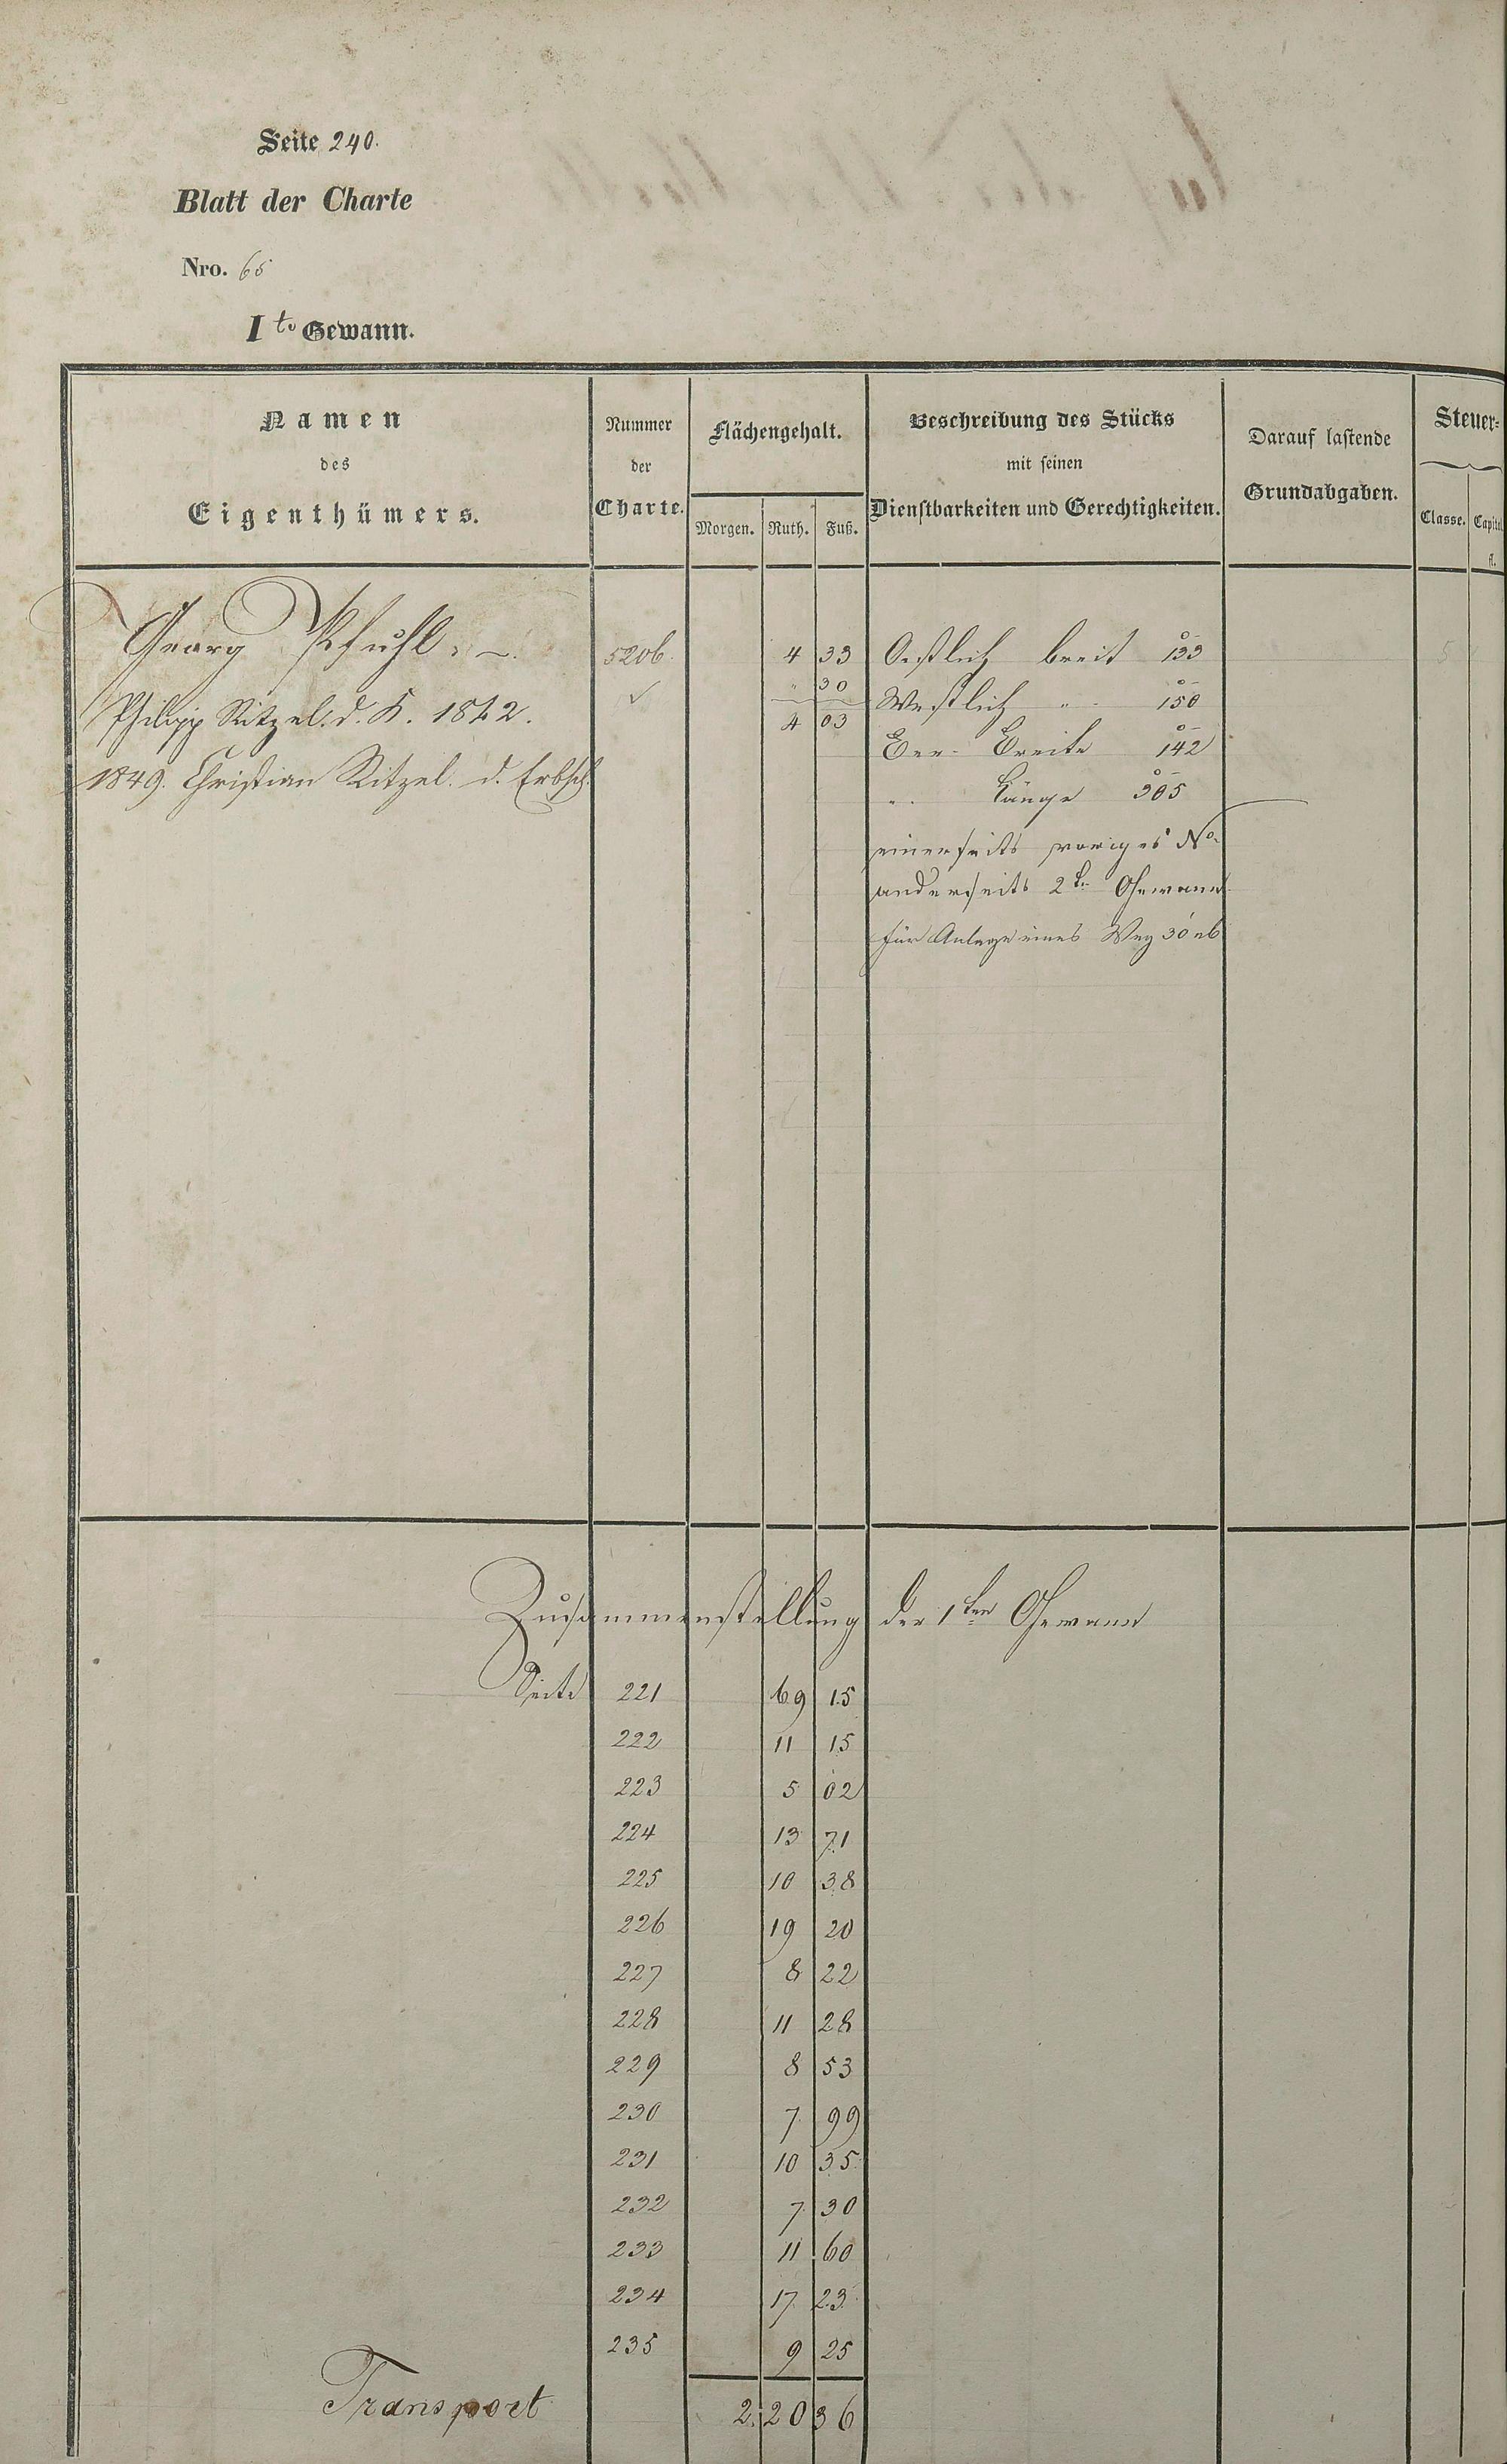 Seite 240.
Blatt der Charte
Nro. 65
I te Gewann.
Namen des Eigenthümers.
Nummer der Charte.
Flächengehalt.
Morgen. Ruth. Fuß.
Beschreibung des Stücks mit seinen Dienstbarkeiten und Gerechtigkeiten.
Darauf lastende Grundabgaben.
Steuer=
Classe. Capital
fl.
Georg Pfuhl. 5206. 4 33 Oestlich breit 133
Philipp Ritzel. d. K. 1842. ✓ " 30 Westlich " 150
4 03
Ver. Breite 142
1849. Christian Ritzel. d. Erbsch.
" Länge 305
einerseits voriges No.
anderseits 2te Gewann
für Anlage eines Weg 30 ab
Zusammenstellung der 1ten Gewann
Seite 221 69 15
222 11 15
223 5 02
224 13 71
225 10 38
226 19 20
227 8 22
228 11 28
229 8 53
230 7 99
231 10 35
232 7 30
233 11 60
234 17 23
235 9 25
Transport 2. 20 36